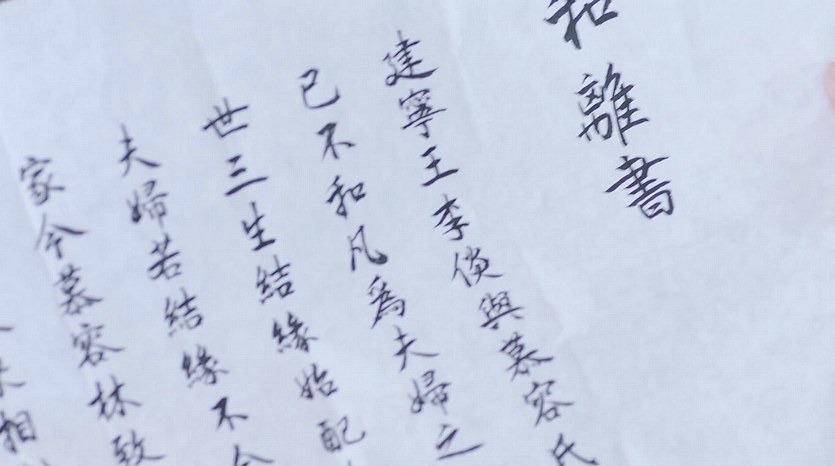 和離書
建寧王李倓與慕容氏
已不和凡為夫婦之
世三生結緣始配
夫婦若結緣不合
家今慕容林致
相